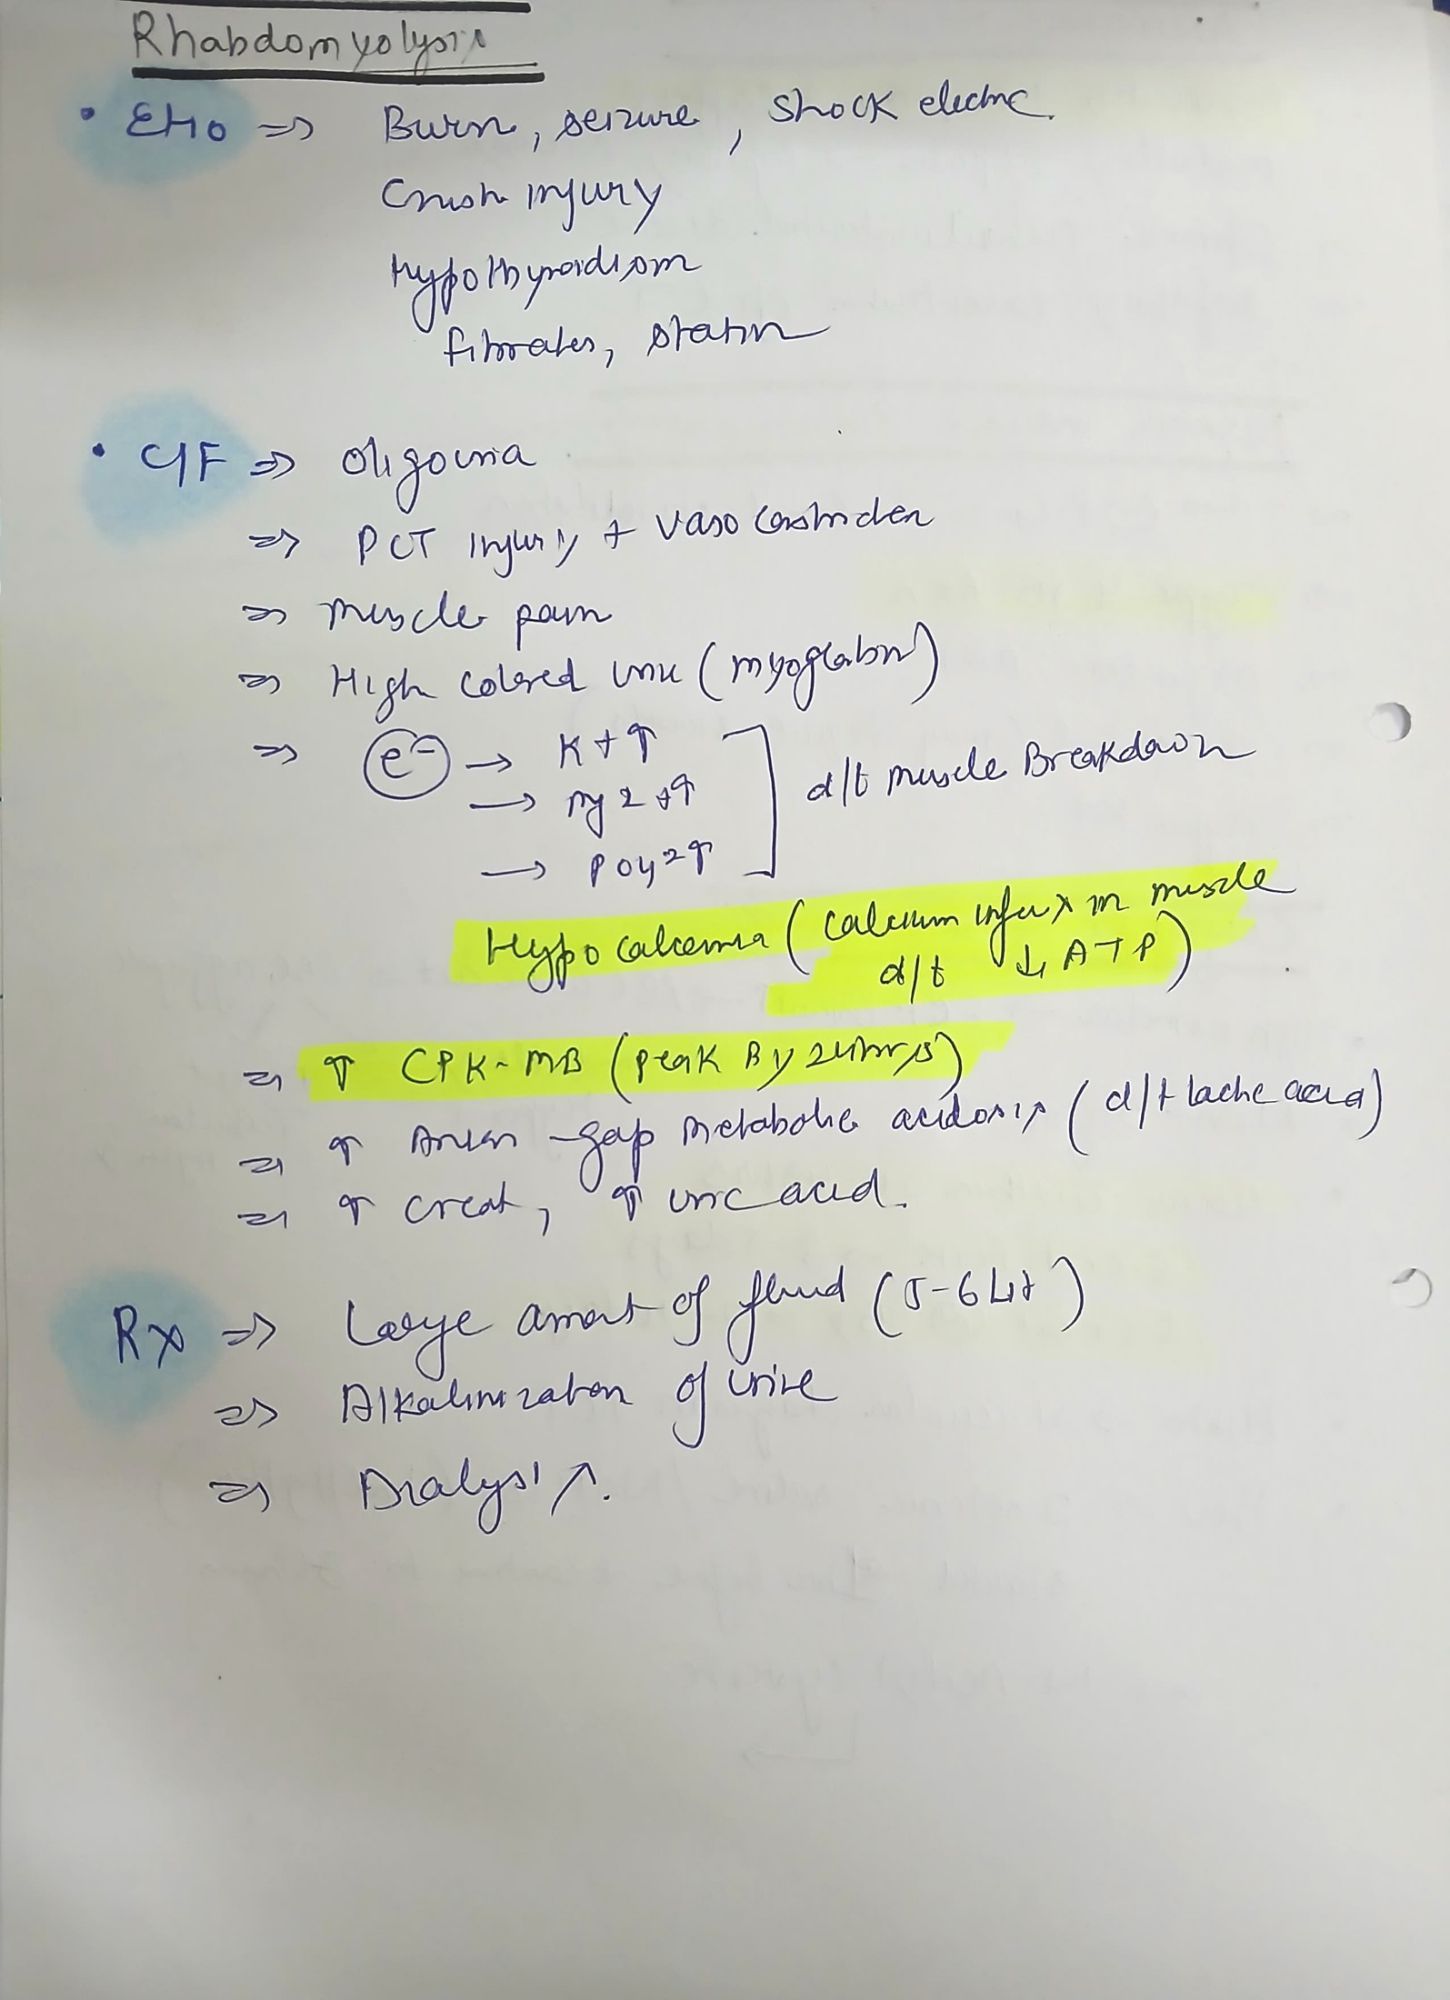 Rhabdomyolysis
• Etio ⇒ Burn, seizure, shock electric.
Crush injury
Hypothyroidism
fibrates, statin
• C/F ⇒ oligouria
⇒ PCT injury + vaso constriction
⇒ muscle pain
⇒ High colored urine (myoglobin)
⇒ e⁻ → K+↑
→ Mg2+↑
→ PO4 2↑
] d/t muscle Breakdown
Hypo calcemia (calcium influx in muscle
d/t ↓ ATP)
⇒ ↑ CPK-MB (peak By 24hrs)
⇒ ↑ Anion-gap metabolic acidosis (d/t lactic acid)
⇒ ↑ creat, ↑ uric acid.
Rx ⇒ Large amont of fluid (5-6 Lit)
⇒ Alkalinization of urine
⇒ Dialysis.